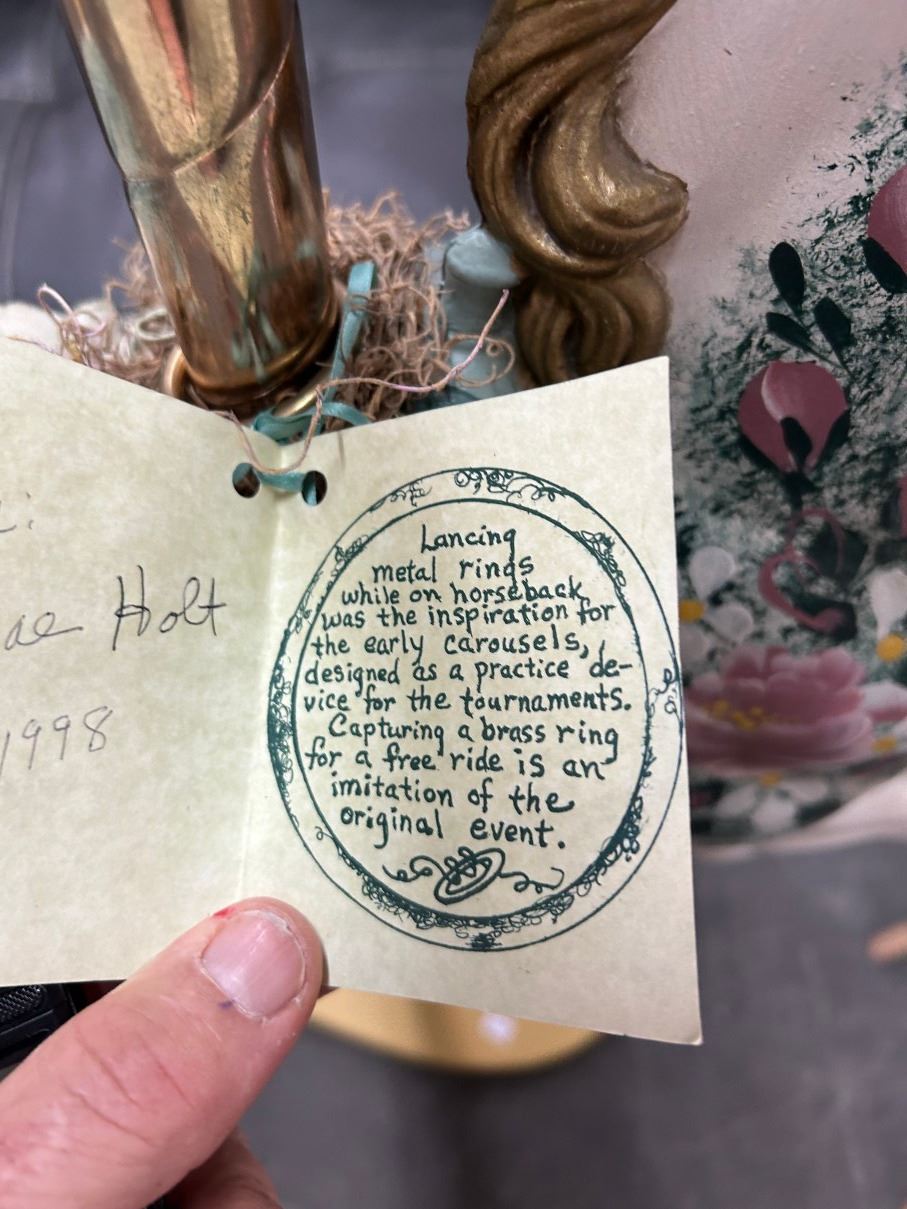 Holt
1998
Lancing
metal rings
while on horseback,
was the inspiration for
the early carousels,
designed as a practice de-
vice for the tournaments.
Capturing a brass ring
for a free ride is an
imitation of the
original event.